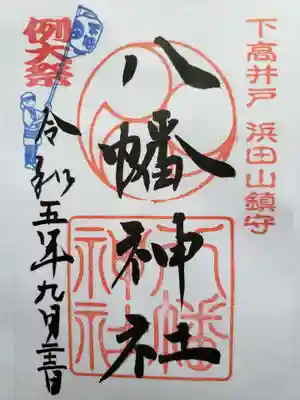 下高井戸 浜田山鎮守
八幡神社
例大祭
令和五年九月二十三日
八幡
神社